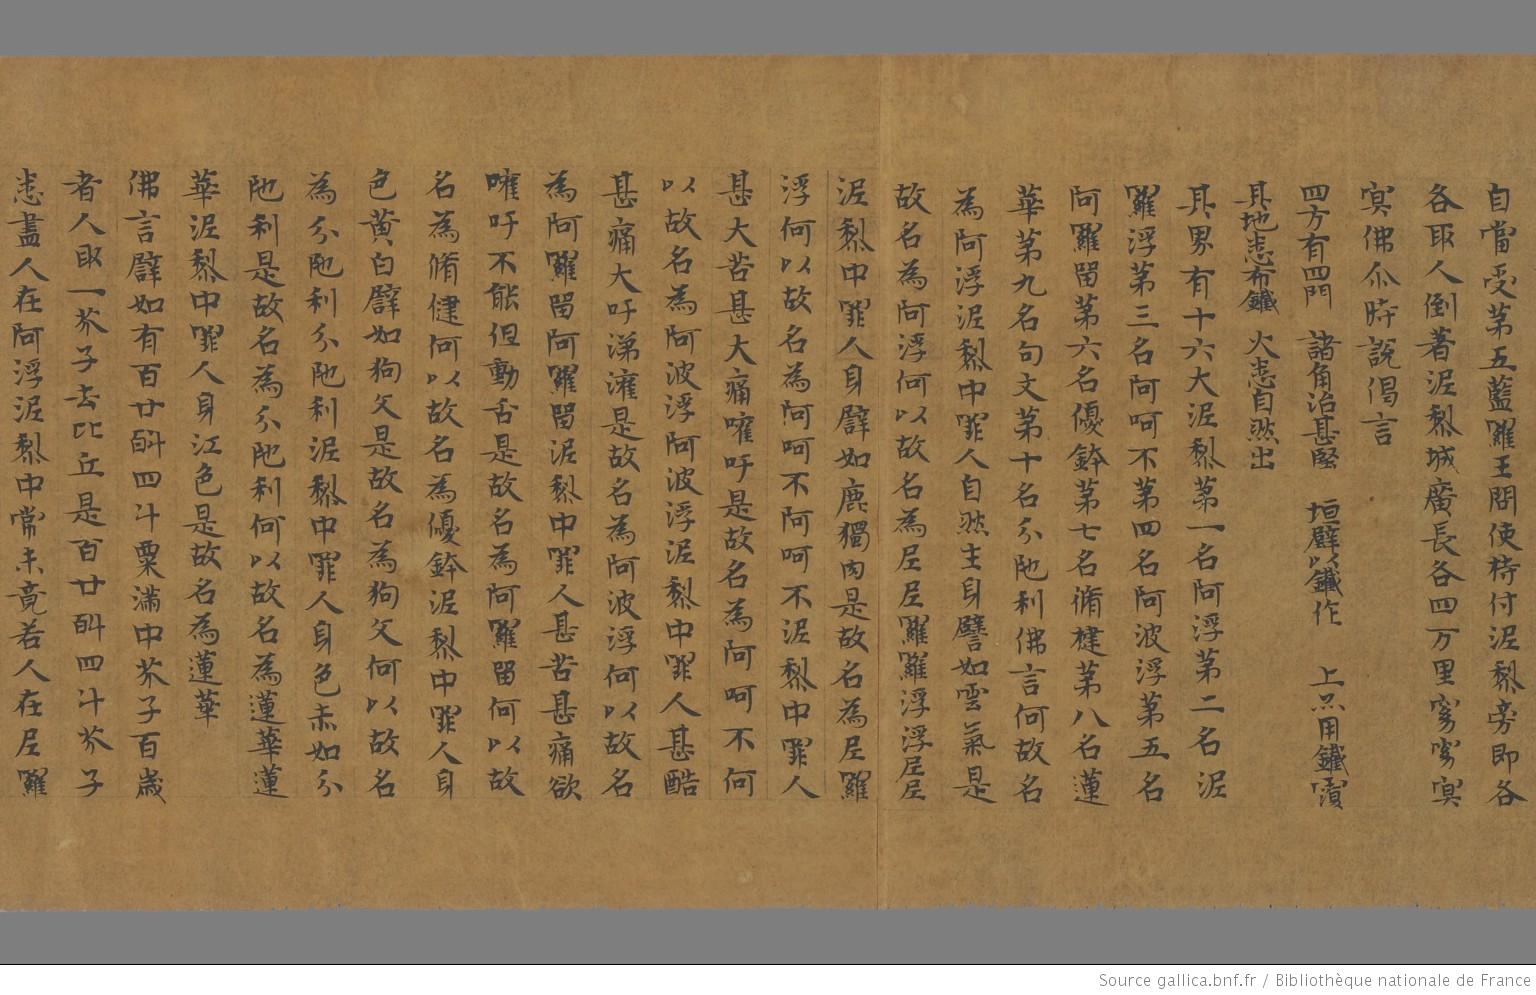 自當受苐五藍羅王問使持付泥梨旁即各
各取人倒著泥梨城廣長各四万里窈窈冥
冥佛尒時說偈言
四方有四門　諸角治甚堅　垣壁以鐵作　上亦用鐵覆
其地悉布鐵　火悉自然出
其界有十六大泥梨苐一名阿浮苐二名泥
羅浮苐三名阿呵不苐四名阿波浮苐五名
阿羅留苐六名優鉢苐七名脩揵苐八名蓮
華苐九名句文苐十名分陁利佛言何故名
為阿浮泥梨中罪人自然生身譬如雲氣是
故名為阿浮何以故名為尼尼羅羅浮浮尼尼
泥梨中罪人身譬如鹿獨肉是故名為尼羅
浮何以故名為阿呵不阿呵不泥梨中罪人
甚大苦甚大痛嚾吁是故名為阿呵不何
以故名為阿波浮阿波浮泥梨中罪人甚酷
甚痛大吁涕瀧是故名為阿波浮何以故名
為阿羅留阿羅留泥梨中罪人甚苦甚痛欲
嚾吁不能但動舌是故名為阿羅留何以故
名為脩健何以故名為優鉢泥梨中罪人身
色黄白譬如狗文是故名為狗文何以故名
為分陁利分陁利泥梨中罪人身色赤如分
陁利是故名為分陁利何以故名為蓮華蓮
華泥梨中罪人身江色是故名為蓮華
佛言譬如有百廿斛四斗粟滿中芥子百歲
者人取一芥子去比丘是百廿斛四斗芥子
悉盡人在阿浮泥梨中常未竟若人在尼羅
Source gallica.bnf.fr / Bibliothèque nationale de France